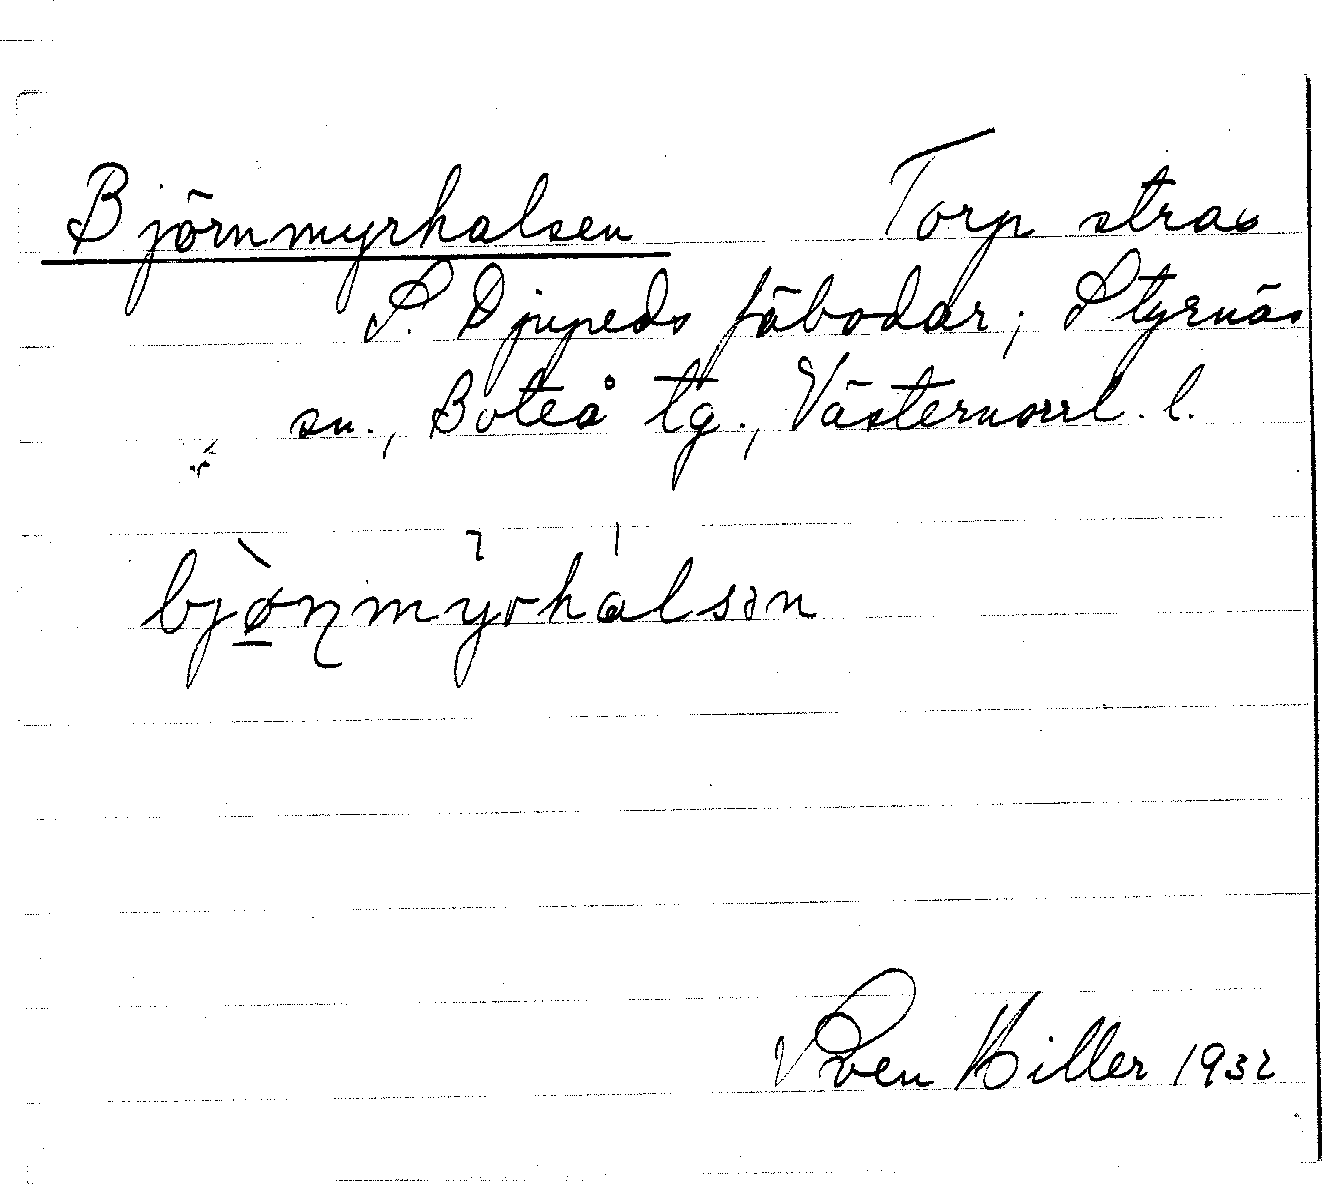 Björnmyrhalsen Torp strax
S. Djupeds fäbodar; Styrnäs
sn., Boteå tg., Västernorrl. l.
Sven Hiller 1932